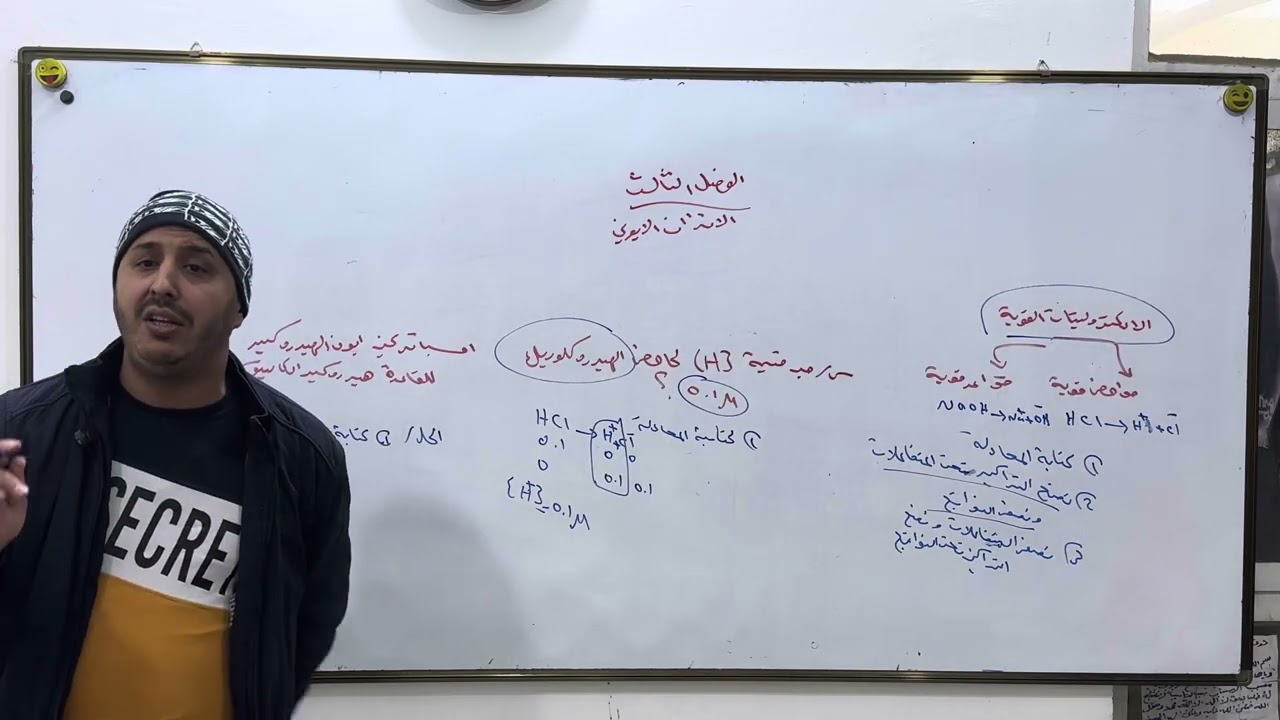 الفصل الثالث
الاتزان الايوني
الالكتروليتات القوية
حوامض قوية
قواعد قوية
HCl → H⁺ + Cl⁻
NaOH → Na⁺ + OH⁻
① كتابة المعادلة
② نضع التراكيز تحت المتفاعلات
ونصفر النواتج
③ نصفر المتفاعلات ونضع
التراكيز تحت النواتج
س/ جد قيمة [H⁺] لحامض الهيدروكلوريك
0.1M ؟
① كتابة المعادلة
HCl → H⁺ + Cl⁻
0.1 0 0
0 0.1 0.1
[H⁺] = 0.1M
احسب تركيز ايون الهيدروكسيد
للقاعدة هيدروكسيد الكالسيوم
الحل/ ① كتابة
SECRE